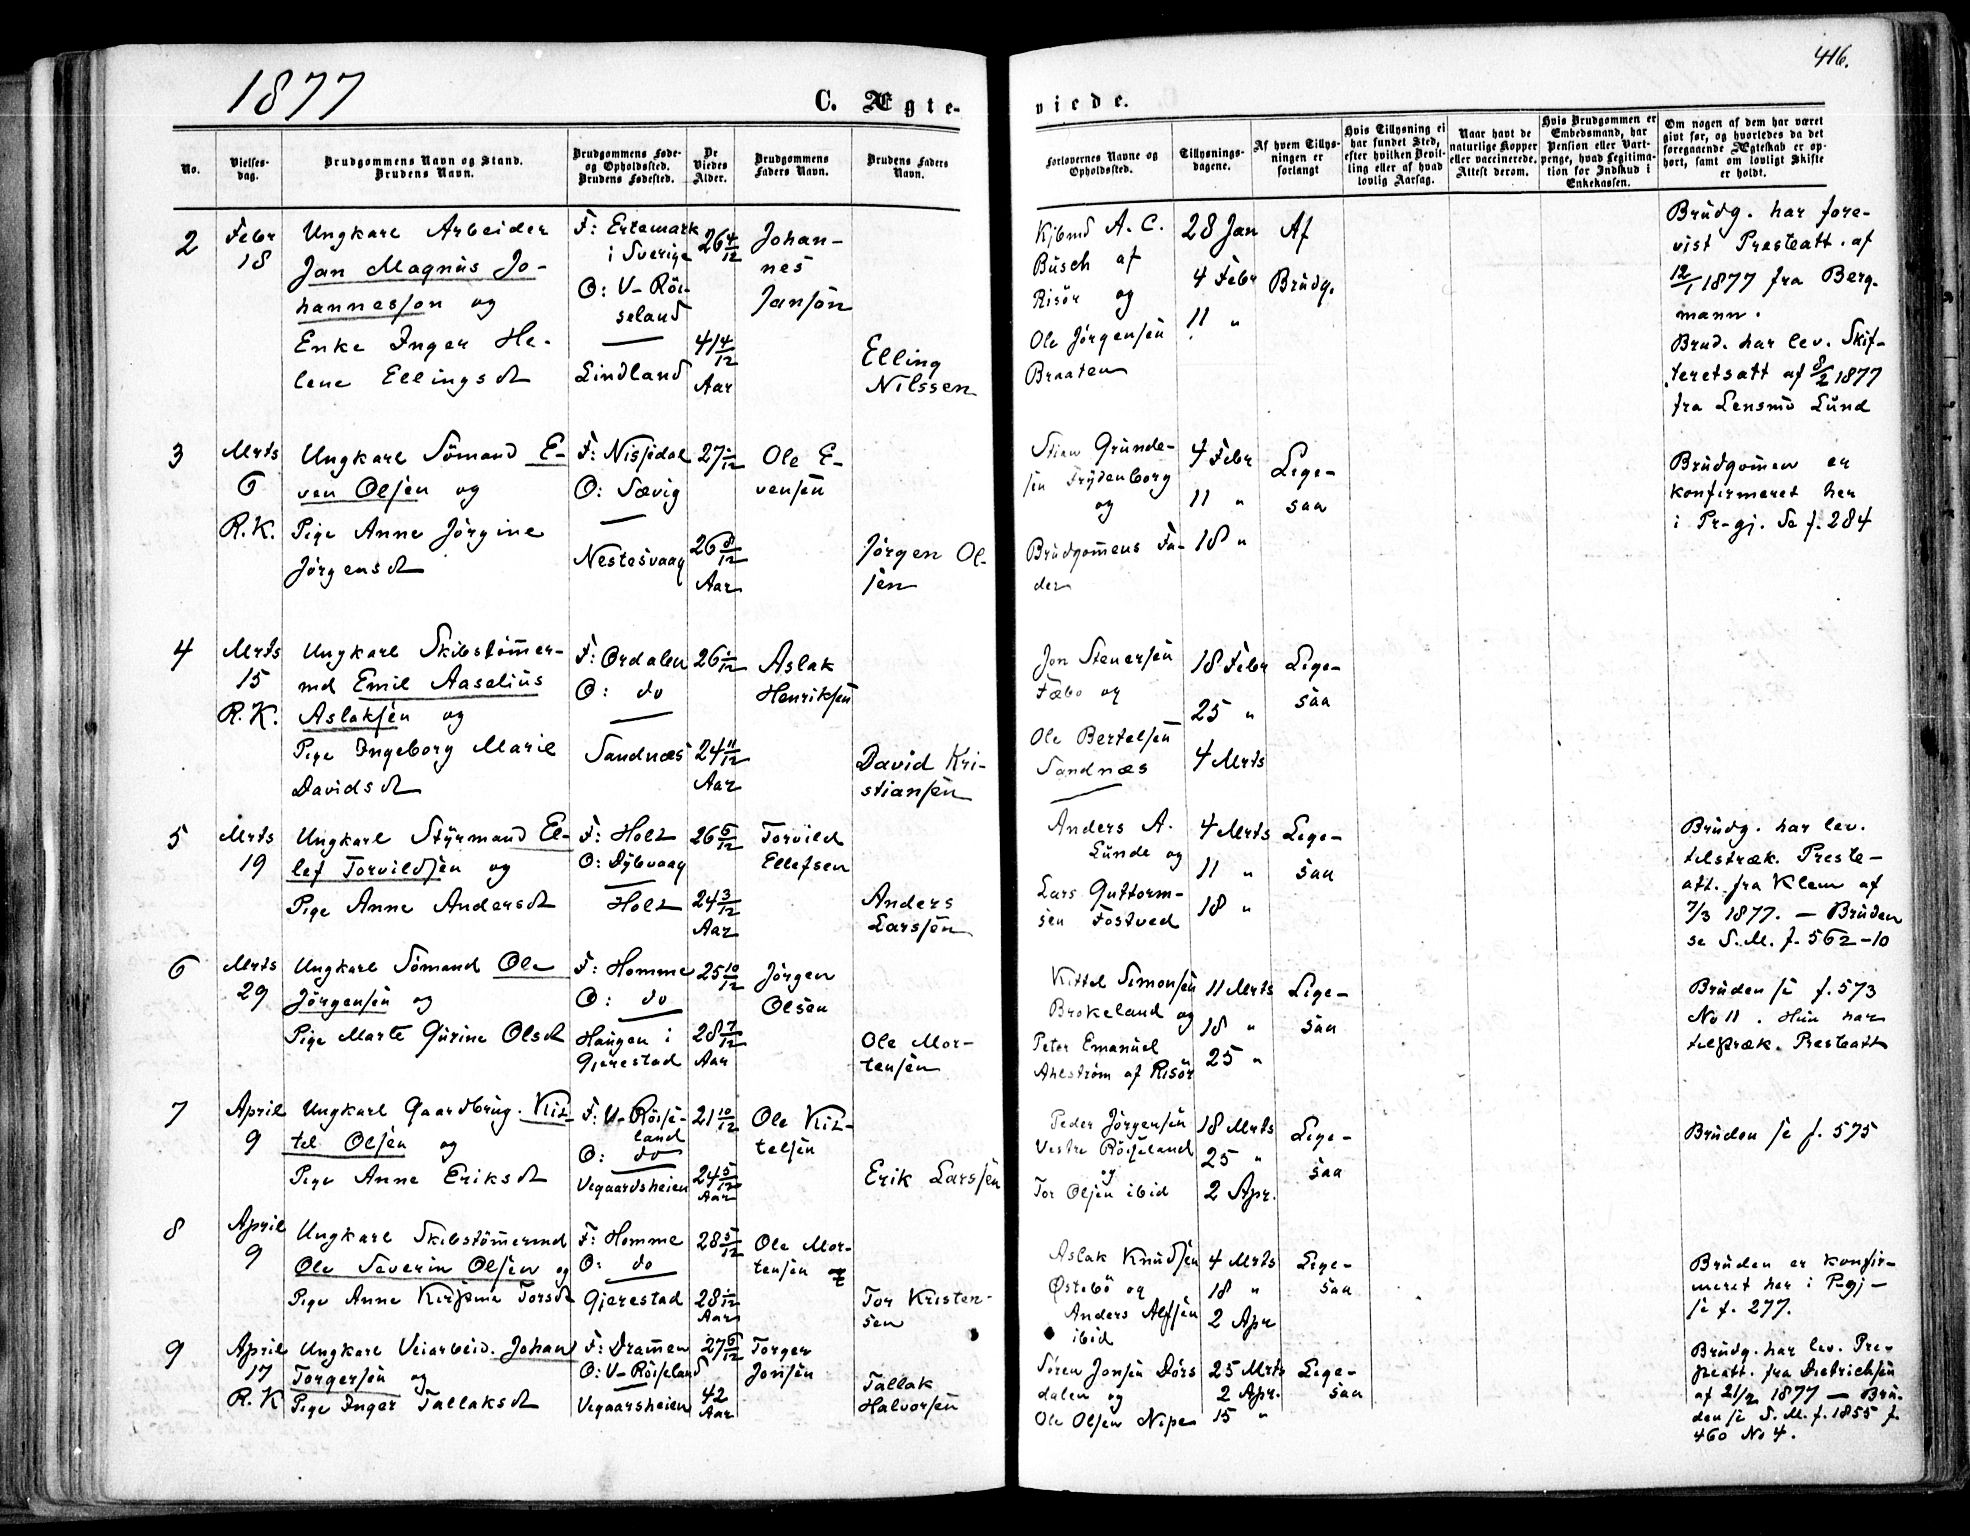 1877
C. Ægte-
viede.
416.
No.
Vielses-
dag.
Brudgommens Navn og Stand.
Brudens Navn.
Brudgommens Føde-
og Opholdssted.
Brudens Fødested.
Dr
Viedes
Alder.
Brudgommens
Faders Navn.
Brudens Faders
Navn.
Forlovernes Navne og
Opholdssted.
Tillysnings-
dagene.
Af hvem Tillys-
ningen er
forlangt
Hvis Tillysning ei
har fundet Sted,
efter hvilken Bevil-
ling eller af hvad
lovlig Aarsag.
Naar havt de
naturlige Kopper
eller vaccinerede.
Attest derom.
Hvis Brudgommen er
Embedsmand, har
Pension eller Vart-
penge, hvad Legitima-
tion for Indskud i
Enkekassen.
Om nogen af dem har været
gift før, og hvorledes da det
foregaaende Ægteskab er op-
hørt, samt om lovligt Skifte
er holdt.
2
Febr
18
Ungkarl Arbeider
Jan Magnus Jo-
hannesson og
Enke Inger He-
lene Ellingsdt
F: Ertemark
i Sverige
O: V-Röi-
seland
Lindland
26 4/12
41 4/12
Aar
Johan-
nes
Janson
Elling
Nilssen
Kjbmd A. C.
Busch af
Risör og
Ole Jörgensen
Braaten
28 Jan
4 Febr
11 "
Af
Brudg.
Brudg. har fore-
vist Presteatt. af
12/1 1877 fra Berg-
mann.
Brud. har lev. Skif-
teretsatt af 8/2 1877
fra Lensmd Lund
3
Mrts
6
R.K.
Ungkarl Sömand E-
ven Olsen og
Pige Anne Jörgine
Jörgensdt
F: Nissidal
O: Sævig
Nestesvaag
27 1/12
26 8/12
Aar
Ole E-
vensen
Jörgen Ol-
sen
Stian Grunde-
sen Frydenborg
og
Brudgomens Fa-
der
4 Febr
11 "
18 "
Lige-
saa
Brudgomen er
konfirmeret her
i Pr-gj. Se f. 284
4
Mrts
15
R.K.
Ungkarl Skibstömer-
md Emil Aaselius
Aslaksen og
Pige Ingeborg Marie
Davidsdt
F: Ordalen
O: do
Sandnæs
26 1/12
24 11/12
Aar
Aslak
Henriksen
David Kri-
stiansen
Jon Stenersen
Fæbo og
Ole Bertelsen
Sandnæs
18 Febr
25 "
4 Mrts
Lige-
saa
5
Mrts
19
Ungkarl Styrmand El-
lef Torvildsen og
Pige Anne Andersdt
F: Holt
O: Dybvaag
Holt
26 6/12
24 3/12
Aar
Torvild
Ellefsen
Anders
Larssen
Anders A.
Lunde og
Lars Guttorm-
sen Fostved
4 Mrts
11 "
18 "
Lige-
saa
Brudg. har lev.
tilstræk. Preste-
att. fra Klem af
7/3 1877. — Bruden
se S.M. f. 562-10
6
Mrts
29
Ungkarl Sömand Ole
Jörgensen og
Pige Marte Gurine Olsdt
F: Homme
O: do
Haugen i
Gjerestad
25 10/12
28 7/12
Aar
Jörgen
Olsen
Ole Mor-
tensen
Kittel Simonsen
Brokeland og
Peter Emanuel
Ahlström af Risör
11 Mrts
18 "
25 "
Lige-
saa
Bruden se f. 573
No 11. Hun har
tilstræk. Presteatt
7
April
9
Ungkarl Gaardbrug. Kit-
tel Olsen og
Pige Anne Eriksdt
F: V-Röise-
land
O: do
Vegaardsheien
21 10/12
24 5/12
Aar
Ole Kit-
telsen
Erik Larssen
Peder Jörgensen
Vestre Röiseland
og
Tor Olsen ibid
18 Mrts
25 "
2 Apr.
Lige-
saa
Bruden se f. 575
8
April
9
Ungkarl Skibstömermd
Ole Severin Olsen og
Pige Anne Kirstine Torsdt
F: Homme
O: do
Gjerestad
28 5/12
28 1/12
Aar
Ole Mor-
tensen
Tor Kristen-
sen
Aslak Knudsen
Østebö og
Anders Alfsen
ibid
4 Mrts
18 "
2 Apr
Lige-
saa
Bruden er konfir-
meret her i P-gj-
se f. 277.
9
April
17
R.K
Ungkarl Veiarbeid. Johan
Torgersen og
Pige Inger Tallaksdt
F: Dramen
O: V-Röiseland
Vegaarsheien
27 6/12
42
Aar
Torger
Jonsen
Tallak
Halvorsen
Sören Jonsen Dörs
dalen og
Ole Olsen Nipe
25 Mrts
2 Apr.
15 "
Lige-
saa
Brudg. har lev. Pre-
steatt. fra Dietrichsen
af 21/2 1877 — Bru-
den se S.M. f. 1855 f.
460 No 4.